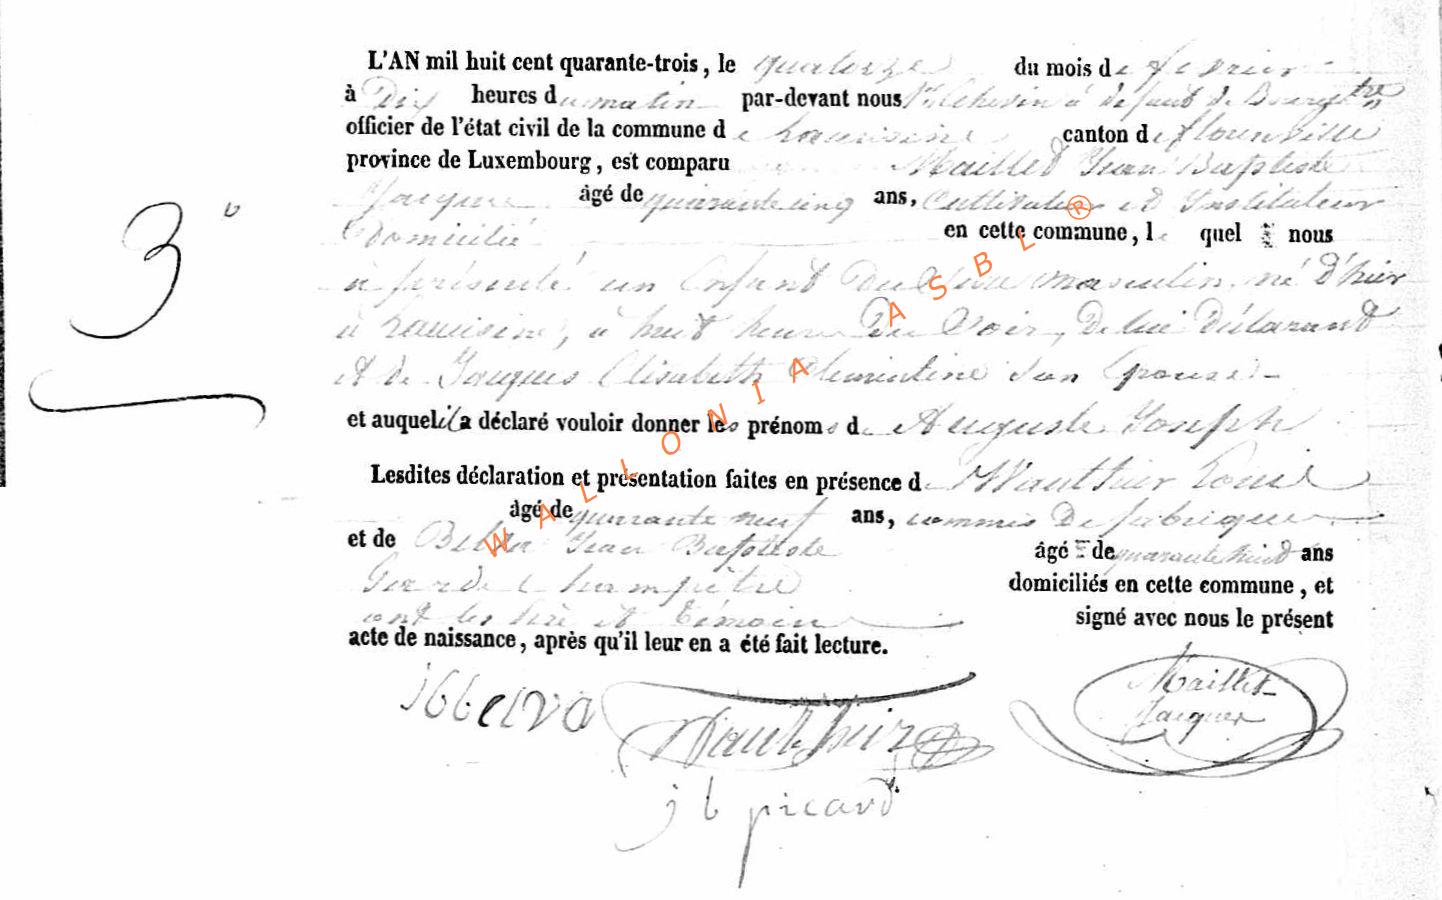 L'AN mil huit cent quarante-trois, le quatorze du mois de fevrier
à Dix heures du matin par-devant nous 1er Echevin à defaut de Bourgtre
officier de l'état civil de la commune de canton de florenville
province de Luxembourg, est comparu Maillet Jean Baptiste
Jacques âgé de quarante cinq ans, Cultivateur et Instituteur
3°
Domicilié en cette commune, le quel nous
a présenté un Enfant Du Sexe masculin, né d'hier
à, à huit heures Du Soir, De lui Déclarant
et de Jacques Elisabeth Clementine Son Epouse
et auquel il a déclaré vouloir donner les prénoms de Auguste Joseph
Lesdites déclaration et présentation faites en présence de Wauthier Louis
âgé de quarante neuf ans, commis De fabrique
et de Jean Baptiste âgé de quarante huit ans
Garde Champêtre domiciliés en cette commune, et
ont les Père et Témoins signé avec nous le présent
acte de naissance, après qu'il leur en a été fait lecture.
Maillet
Jacques
jb belva Wauthier
j b picard
WALLONIA ASBL ®